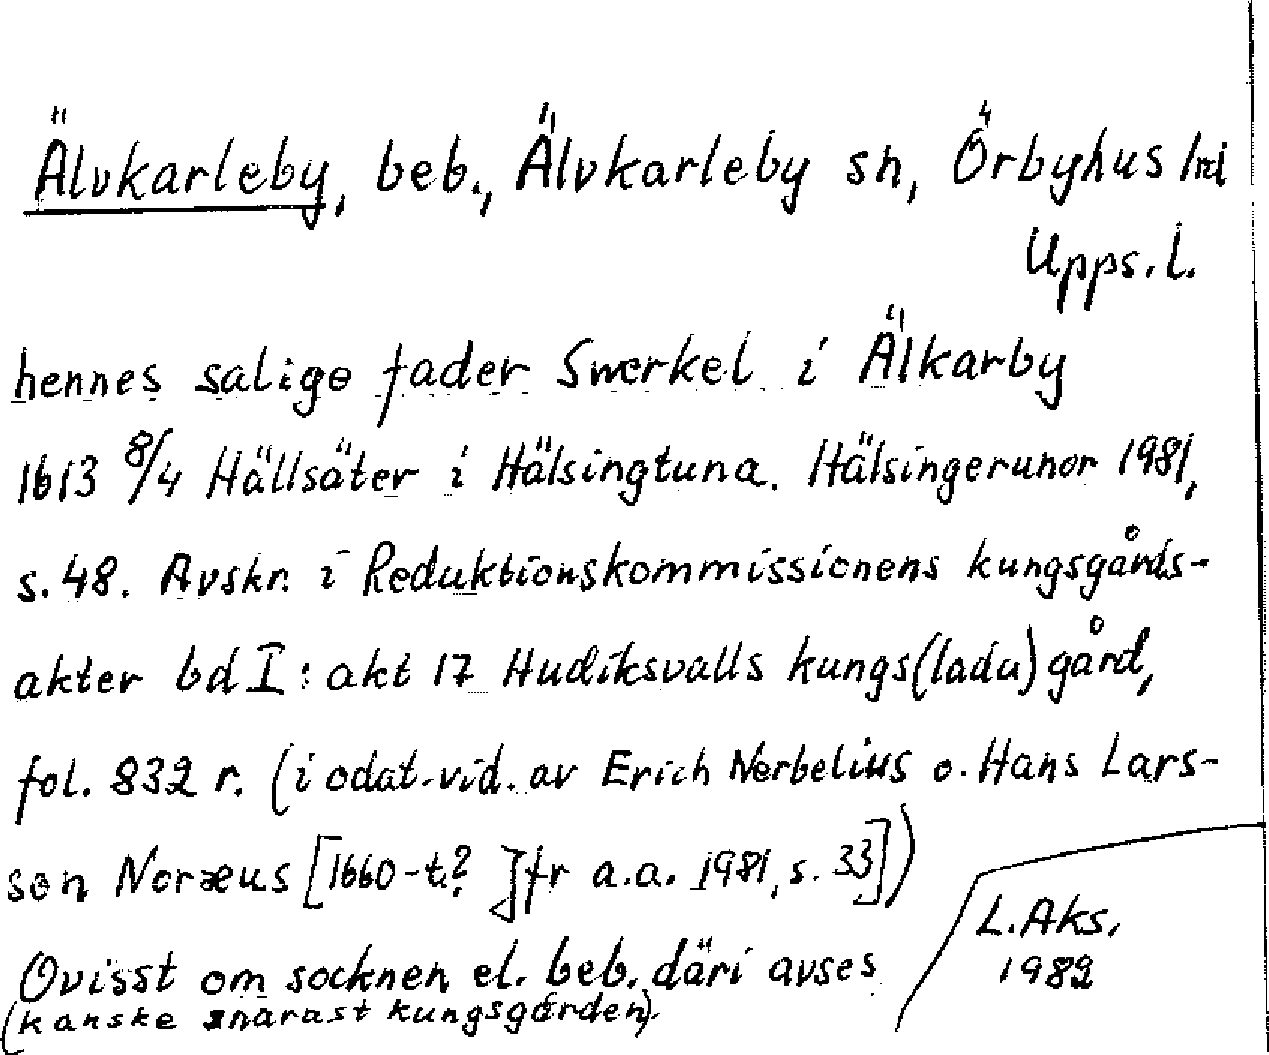 Älvkarleby, beb., Älvkarleby sn, Örbyhus hd
Upps.l.
hennes salige fader Swerkel i Älkarby
1613 8/4 Hällsäter i Hälsingtuna. Hälsingerunor 1981,
s. 48. Avskr. i Reduktionskommissionens kungsgårds-
akter bd I: akt 17 Hudiksvalls kungs(ladu)gård,
fol. 832 r. (i odat. vid. av Erich Nerbelius o. Hans Lars-
son Noræus [1660-t.? Jfr a.a. 1981, s. 33])
Ovisst om socknen el. beb. däri avses
(kanske snarast kungsgården).
L.Aks.
1982